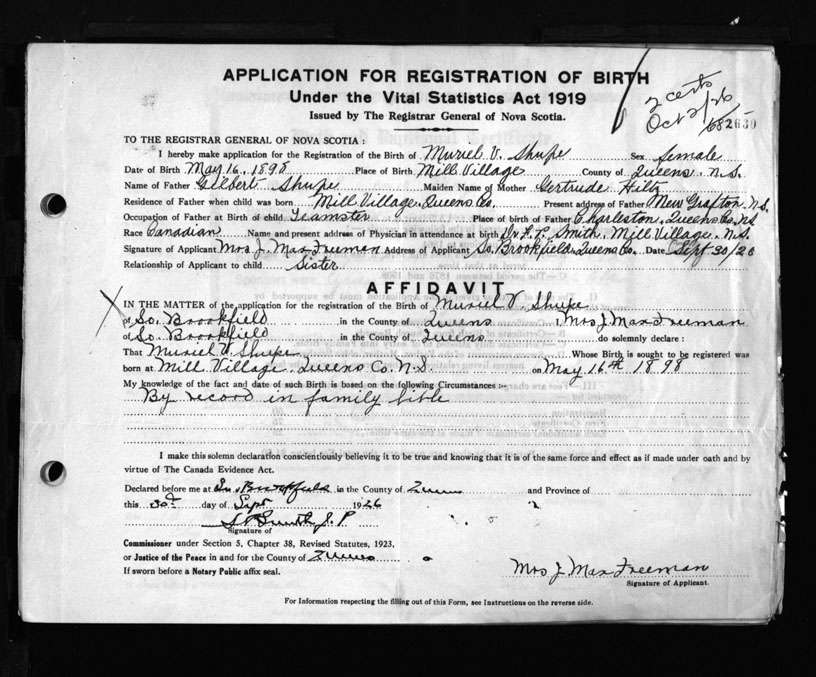 APPLICATION FOR REGISTRATION OF BIRTH
Under the Vital Statistics Act 1919
Issued by The Registrar General of Nova Scotia.
2 certs
Oct 2/26
682630
TO THE REGISTRAR GENERAL OF NOVA SCOTIA:
I hereby make application for the Registration of the Birth of Muriel V. Shupe Sex female
Date of Birth May 16, 1898 Place of Birth Mill Village County of Queens. N.S.
Name of Father Gilbert Shupe Maiden Name of Mother Gertrude Hiltz
Residence of Father when child was born Mill Village, Queens Co. Present address of Father New Grafton, N.S.
Occupation of Father at Birth of child Teamster Place of birth of Father Charleston, Queens Co. N.S.
Race Canadian Name and present address of Physician in attendance at birth Dr. Smith, Mill Village, N.S.
Signature of Applicant Mrs J. Max Freeman Address of Applicant So. Brookfield, Queens Co. Date Sept 30/26
Relationship of Applicant to child Sister
AFFIDAVIT
IN THE MATTER of the application for the registration of the Birth of Muriel V. Shupe
of So. Brookfield in the County of Queens I, Mrs J. Max Freeman
of So. Brookfield in the County of Queens do solemnly declare:
That Muriel V. Shupe Whose Birth is sought to be registered was
born at Mill Village, Queens Co. N.S. on May 16th 1898
My knowledge of the fact and date of such Birth is based on the following Circumstances:-
By record in family bible
I make this solemn declaration conscientiously believing it to be true and knowing that it is of the same force and effect as if made under oath and by
virtue of The Canada Evidence Act.
Declared before me at So. Brookfield in the County of Queens and Province of
this 30th day of Sept 1926
Smith J. P.
Signature of
Commissioner under Section 5, Chapter 38, Revised Statutes, 1923.
or Justice of the Peace in and for the County of Queens
If sworn before a Notary Public affix seal.
Mrs J. Max Freeman
Signature of Applicant.
For Information respecting the filling out of this Form, see Instructions on the reverse side.